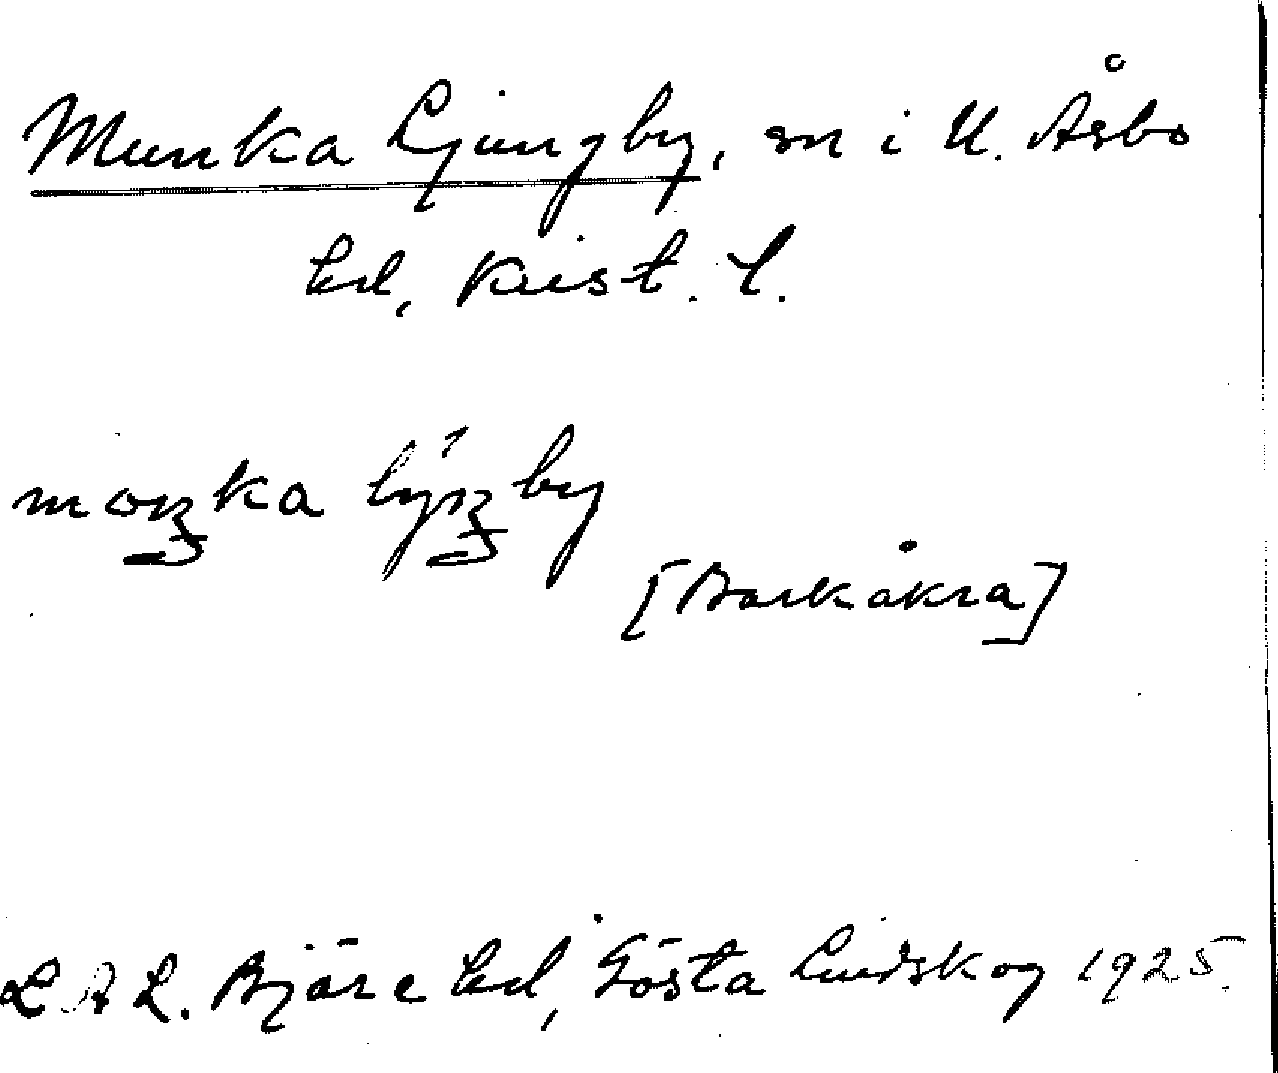 Munka Ljungby, sn i N. Åsbo
hd, Krist. l.
moŋka lýŋby
[Barkåkra]
L A L. Bjäre hd, Gösta Lindskog 1925.